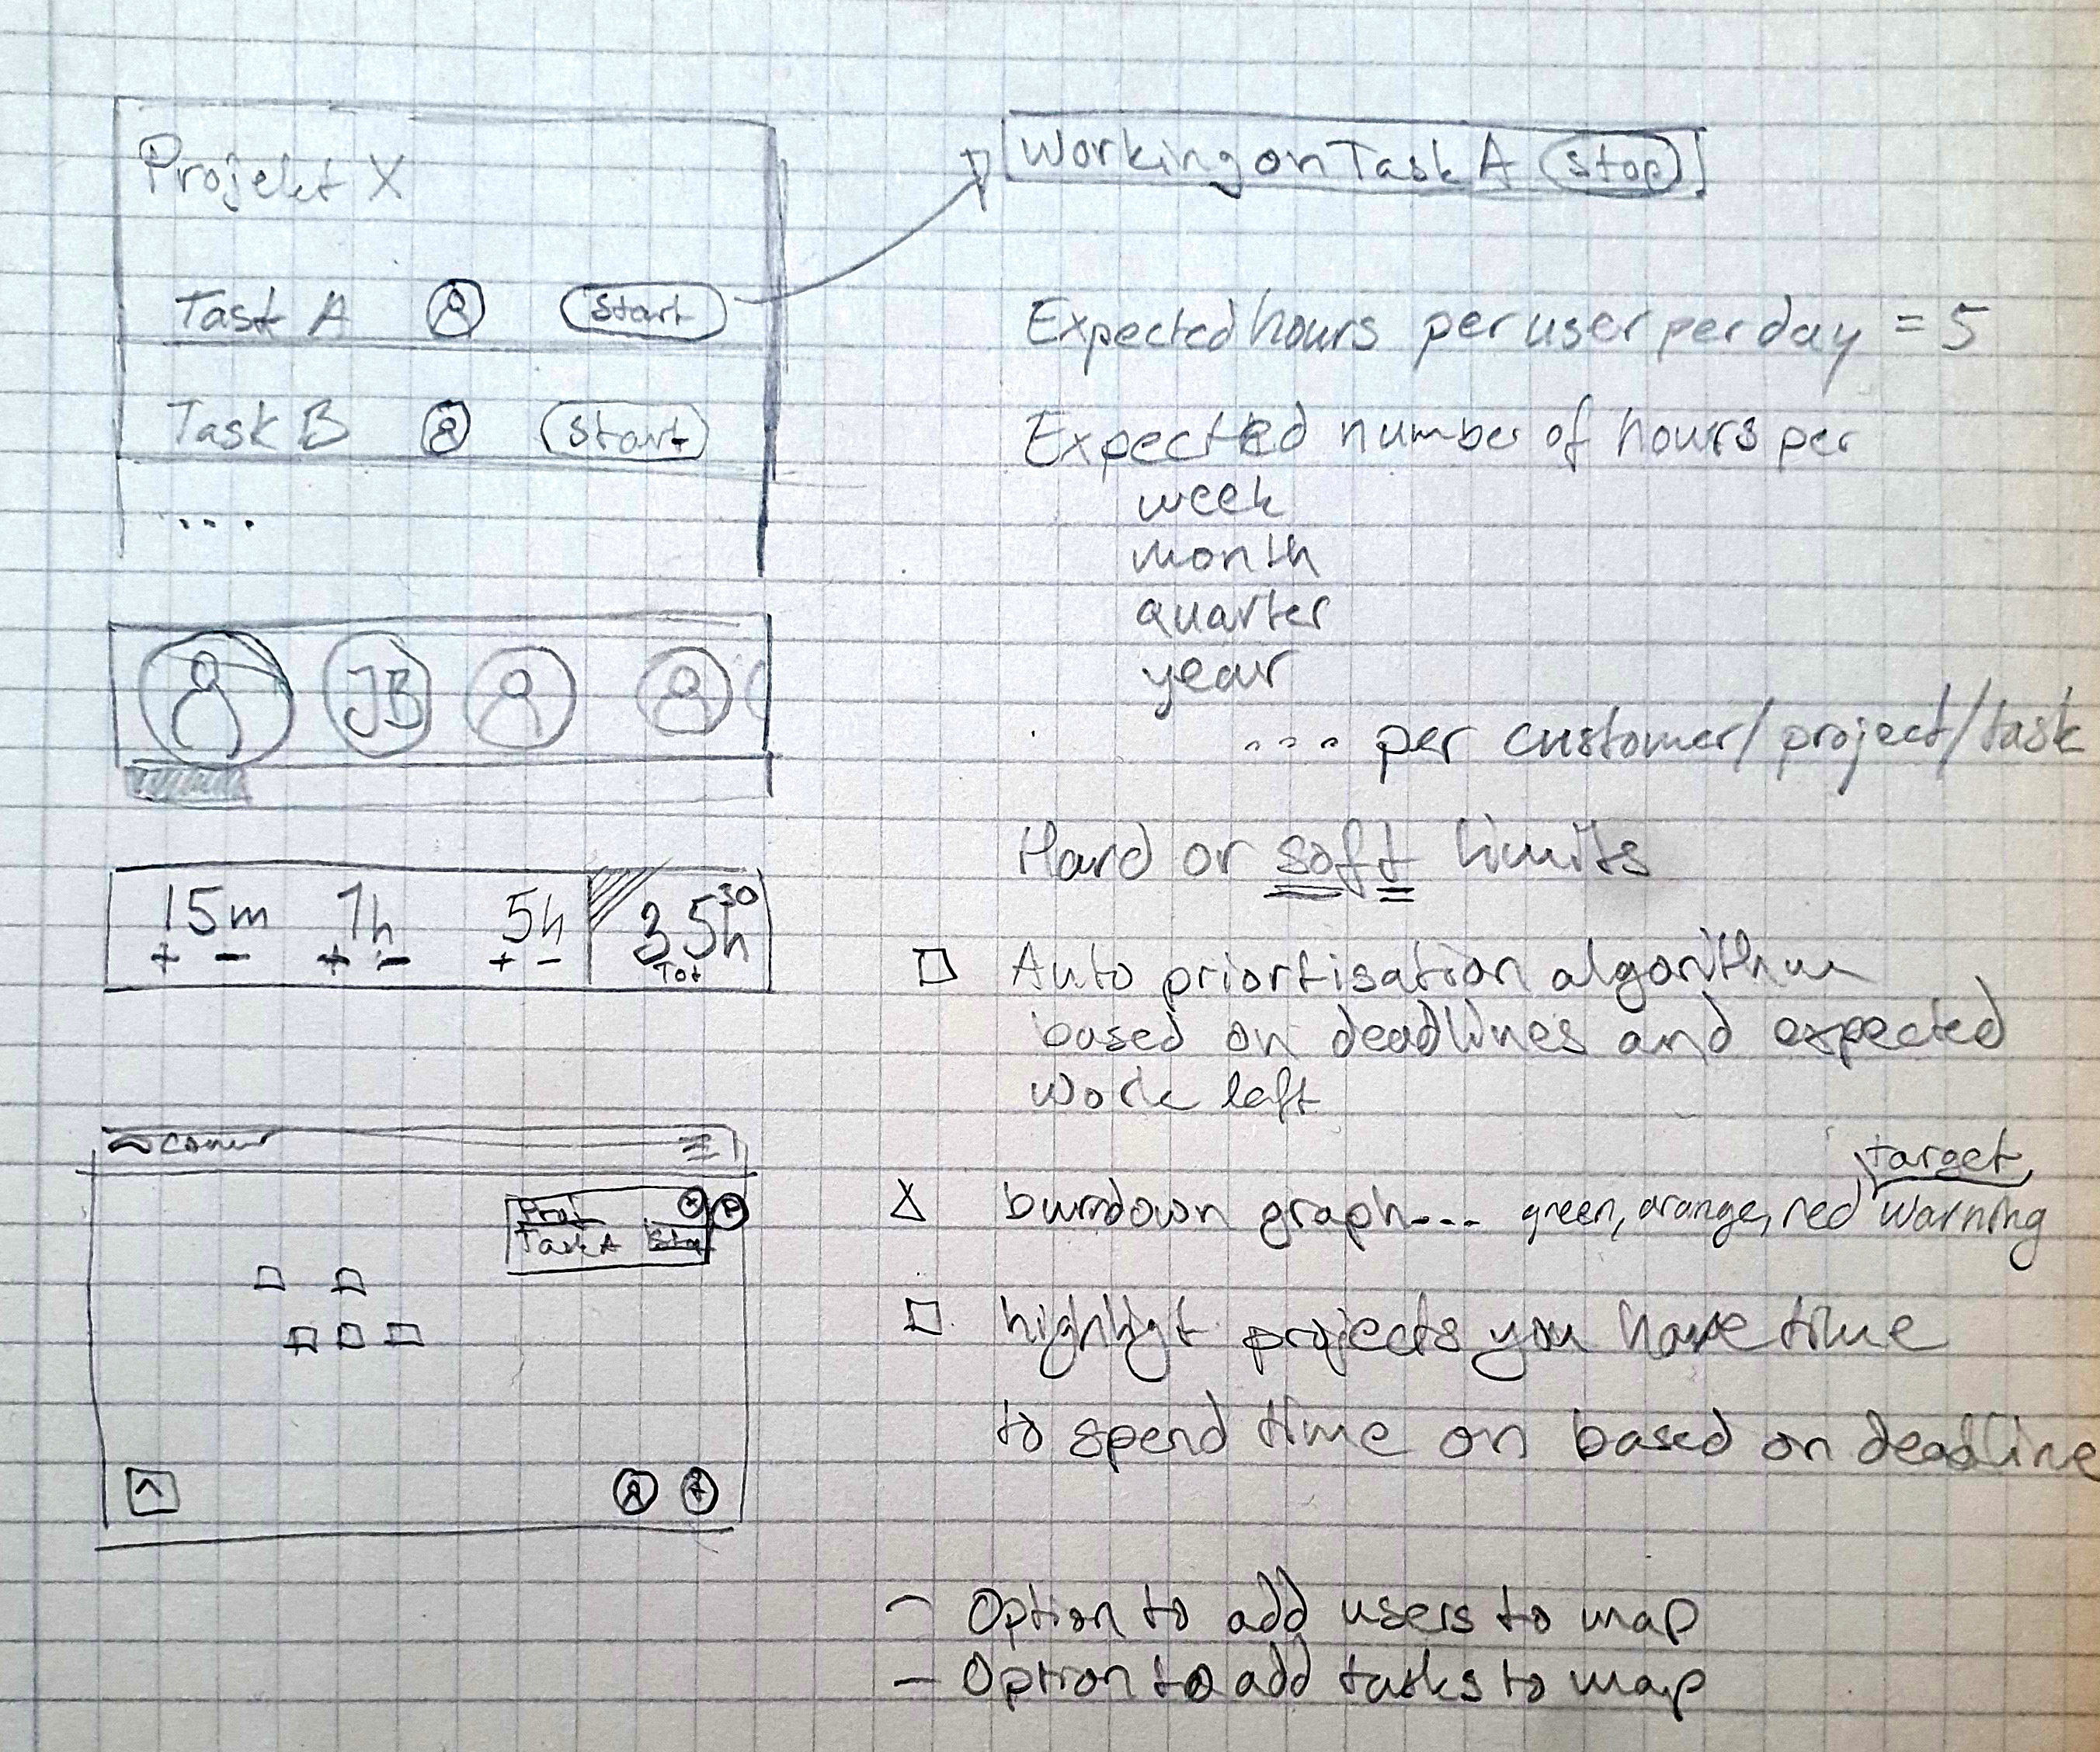 Projekt X
Task A Start
Task B Start
....
JB
15m 1h 5h 35h 30
+ - + - + - Tot
Proj
Task A
Working on Task A Stop
Expected hours per user per day = 5
Expected number of hours per
week
month
quarter
year
.... per customer/project/task
Hard or soft limits
Auto priortisation algorithm
based on deadlines and expected
work left
target
burndown graph... green, orange, red warning
highligt projects you have time
to spend time on based on deadline
- Option to add users to map
- Option to add tasks to map